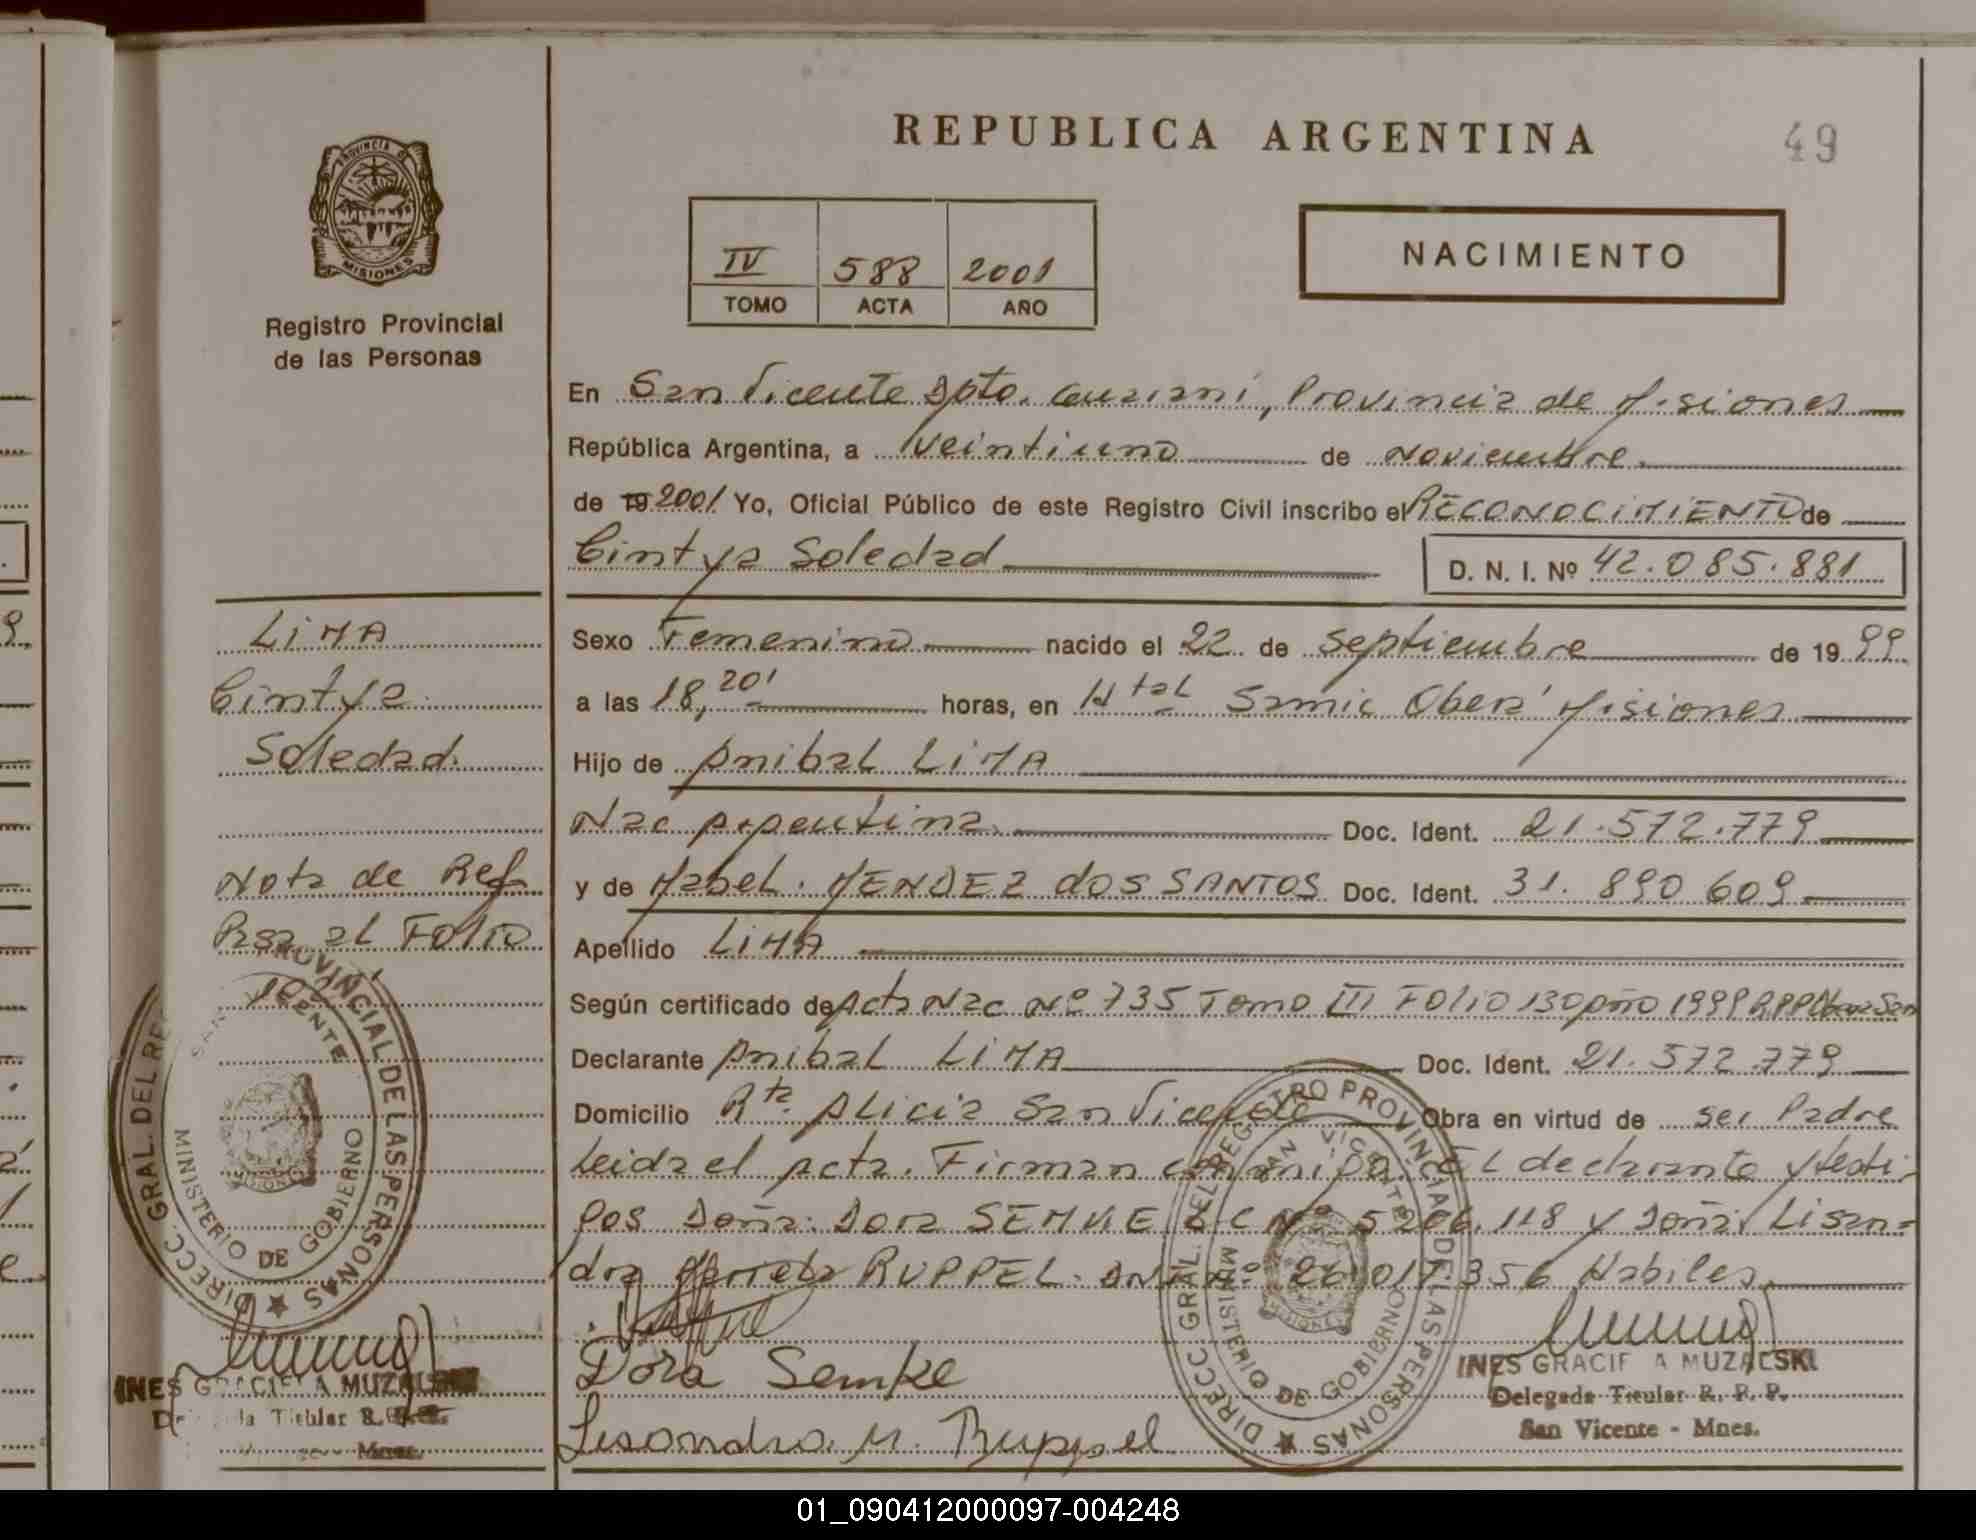 REPUBLICA ARGENTINA
49
PROVINCIA DE
MISIONES
Registro Provincial
de las Personas
IV 588 2001
TOMO ACTA AÑO
NACIMIENTO
En San Vicente Dpto. Guaraní, Provincia de Misiones
República Argentina, a veintiuno de noviembre
de 19 2001 Yo, Oficial Público de este Registro Civil inscribo el RECONOCIMIENTO de
Cintya Soledad
D. N. I. Nº 42.085.881
Sexo Femenino nacido el 22 de septiembre de 1999
a las 18,20' horas, en Htal Samic Oberá Misiones
Hijo de Anibal LIMA
Nac Argentina. Doc. Ident. 21.572.779
y de Mabel. MENDEZ dos SANTOS Doc. Ident. 31.890 609
Apellido LIMA
Según certificado de Acta Nac Nº 735 Tomo III Folio 130 Año 1999 R.P.P.
Declarante Anibal LIMA Doc. Ident. 21.572.779
Domicilio Rta. Alicia San Vicente Obra en virtud de ser Padre
Leida el acta. Firman conmigo. EL declarante y testi-
gos Doña: Dora SEMKE L C Nº 5266.118 y Doña: Lisan=
dra RUPPEL. DNI Nº 26.017.356 Habiles.
Dora Semke
Lisandra. M. Ruppel
INES GRACIELA MUZALSKI
Delegada Titular R. P. P.
San Vicente - Mnes.
DIRECC. GRAL. DEL REGISTRO PROVINCIAL DE LAS PERSONAS
SAN VICENTE
MINISTERIO DE GOBIERNO
MISIONES
LIMA
Cintya
Soledad.
Nota de Ref
Pasa al Folio
DIRECC. GRAL. DEL REGISTRO PROVINCIAL DE LAS PERSONAS
SAN VICENTE
MINISTERIO DE GOBIERNO
MISIONES
INES GRACIELA MUZALSKI
Delegada Titular R.
Mnes.
01_090412000097-004248